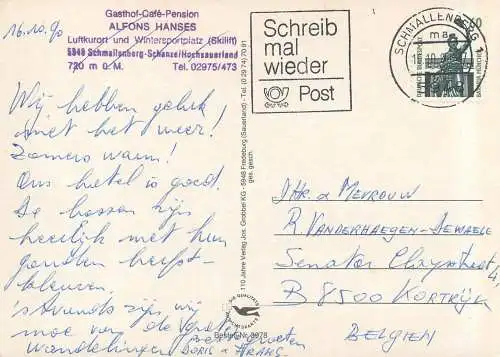 16.10.90
Gasthof-Café-Pension
ALFONS HANSES
Luftkurort und Wintersportplatz (Skilift)
5948 Schmallenberg-Schanze/Hochsauerland
720 m ü. M. Tel. 02975/473
Wij hebben geluk
met het weer!
Zomers warm!
Ons hotel is goed.
De bossen zijn
heerlijk met hun
gouden herfst-
kleuren.
's avonds zijn wij
moe van de grote
wandelingen
Doris & Frans
110 Jahre Verlag Jos. Grobbel KG - 5948 Fredeburg (Sauerland) - Tel. (0 29 74) 70 91
ges. gesch.
Bestell-Nr. 8078
Schreib
mal
wieder
Post
SCHMALLENBERG 1
60
DEUTSCHE BUNDESPOST
BAVARIA MÜNCHEN
Dhr. & Mevrouw
R. Vanderhaegen-Dewaele
Senator
B 8500 Kortrijk
BELGIEN